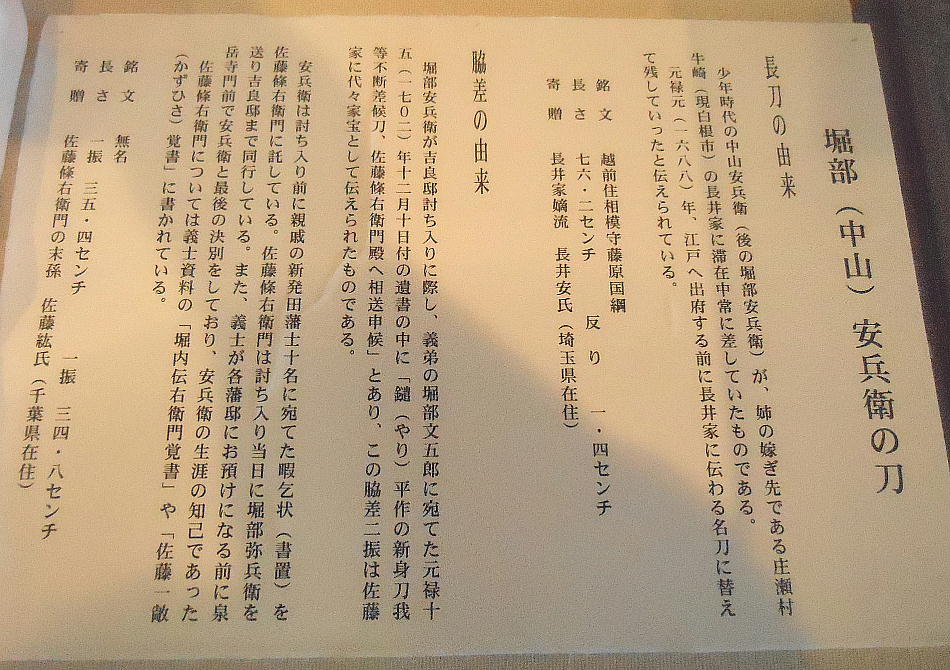 堀部（中山）安兵衛の刀
長刀の由来
少年時代の中山安兵衛（後の堀部安兵衛）が、姉の嫁ぎ先である庄瀬村
牛崎（現白根市）の長井家に滞在中常に差していたものである。
元禄元（一六八八）年、江戸へ出府する前に長井家に伝わる名刀に替え
て残していったと伝えられている。
銘文 越前住相模守藤原国綱
長さ 七六・二センチ 反り 一・四センチ
寄贈 長井家嫡流 長井安氏（埼玉県在住）
脇差の由来
堀部安兵衛が吉良邸討ち入りに際し、義弟の堀部文五郎に宛てた元禄十
五（一七〇二）年十二月十日付の遺書の中に「鑓（やり）平作の新身刀我
等不断差候刀、佐藤條右衛門殿へ相送申候」とあり、この脇差二振は佐藤
家に代々家宝として伝えられたものである。
安兵衛は討ち入り前に親戚の新発田藩士十名に宛てた暇乞状（書置）を
佐藤條右衛門に託している。佐藤條右衛門は討ち入り当日に堀部弥兵衛を
送り吉良邸まで同行している。また、義士が各藩邸にお預けになる前に泉
岳寺門前で安兵衛と最後の決別をしており、安兵衛の生涯の知己であった
佐藤條右衛門については義士資料の「堀内伝右衛門覚書」や「佐藤一敞
（かずひさ）覚書」に書かれている。
銘文 無名
長さ 一振 三五・四センチ 一振 三四・八センチ
寄贈 佐藤條右衛門の末孫 佐藤紘氏（千葉県在住）